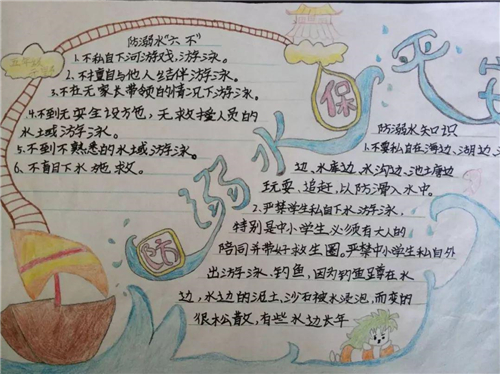 防溺水“六不”
1.不私自下河游戏、游泳。
2.不擅自与他人结伴游泳。
3.不在无家长带领的情况下游泳。
4.不到无安全设施,无救援人员的
水域游泳。
5.不到不熟悉的水域游泳。
6.不盲目下水施救。
防溺水
保
平
防溺水知识
1.不要私自在海边、湖边、
边、水库边、水沟边、池塘边
玩耍、追赶,以防滑入水中。
2.严禁学生私自下水游泳,
特别是中小学生必须有大人的
陪同并带好救生圈。严禁中小学生私自外
出游泳、钓鱼,因为钓鱼蹲在水
边,水边的泥土、沙石被水浸泡,而变的
很松散,有些水边长年